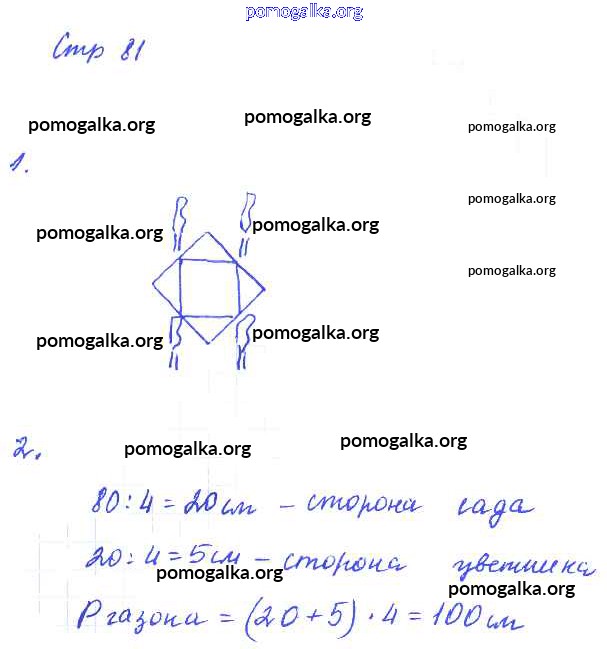 pomogalka.org
Стр 81
pomogalka.org pomogalka.org pomogalka.org
1.
pomogalka.org
pomogalka.org pomogalka.org
pomogalka.org
pomogalka.org pomogalka.org
2.
pomogalka.org pomogalka.org
80 : 4 = 20 см - сторона сада
20 : 4 = 5 см - сторона цветника
pomogalka.org
pomogalka.org
P газона = (20 + 5) · 4 = 100 см